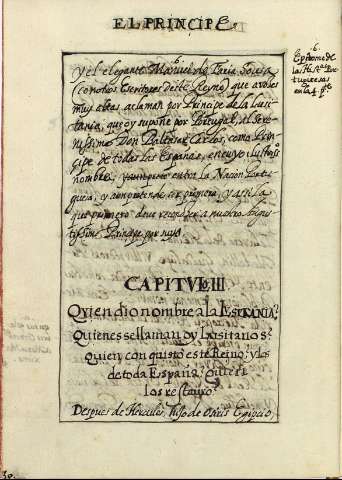 EL PRINCIPE
y el elegante Manuel de Faria Sousa
(con otros Escritores deste Reyno) que a voses
muy altas aclaman por Principe de la Lusi
tania, que oy supone por Portugal, al Sere
nissimo Don Baltasar Carlos, como Prin
cipe de todas las Españas, en cuyo
nombre, entra la Nacion Portu
guesa, y aun pretende ser primera, y assi la
que primero deve reconoser a nuestro Augus
tissimo Principe por suyo
6.
Epitome de
las Hist.as Por
tuguesas
en la 4. pte
CAPITVLO III
Qvien dio nombre a la LVSITANIA?
Quienes se llaman oy Lusitanos?
Quien conquisto este Reino; y los
de toda España; Quien
los restauro?
Despues de Hercules, hijo de Osiris Egipcio